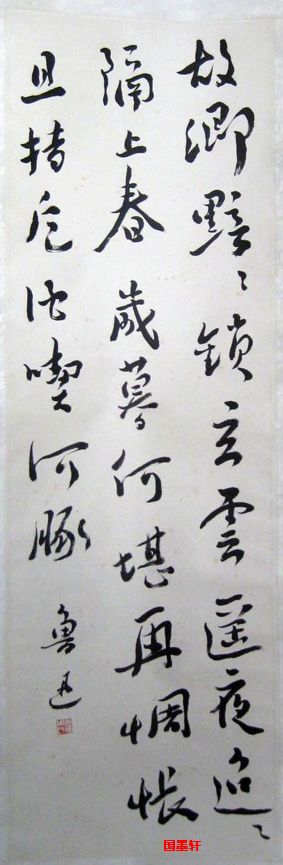 故鄉黯〻鎖玄雲遙夜迢〻
隔上春歲暮何堪再惆悵
且持卮酒喫河豚
魯迅
国墨轩